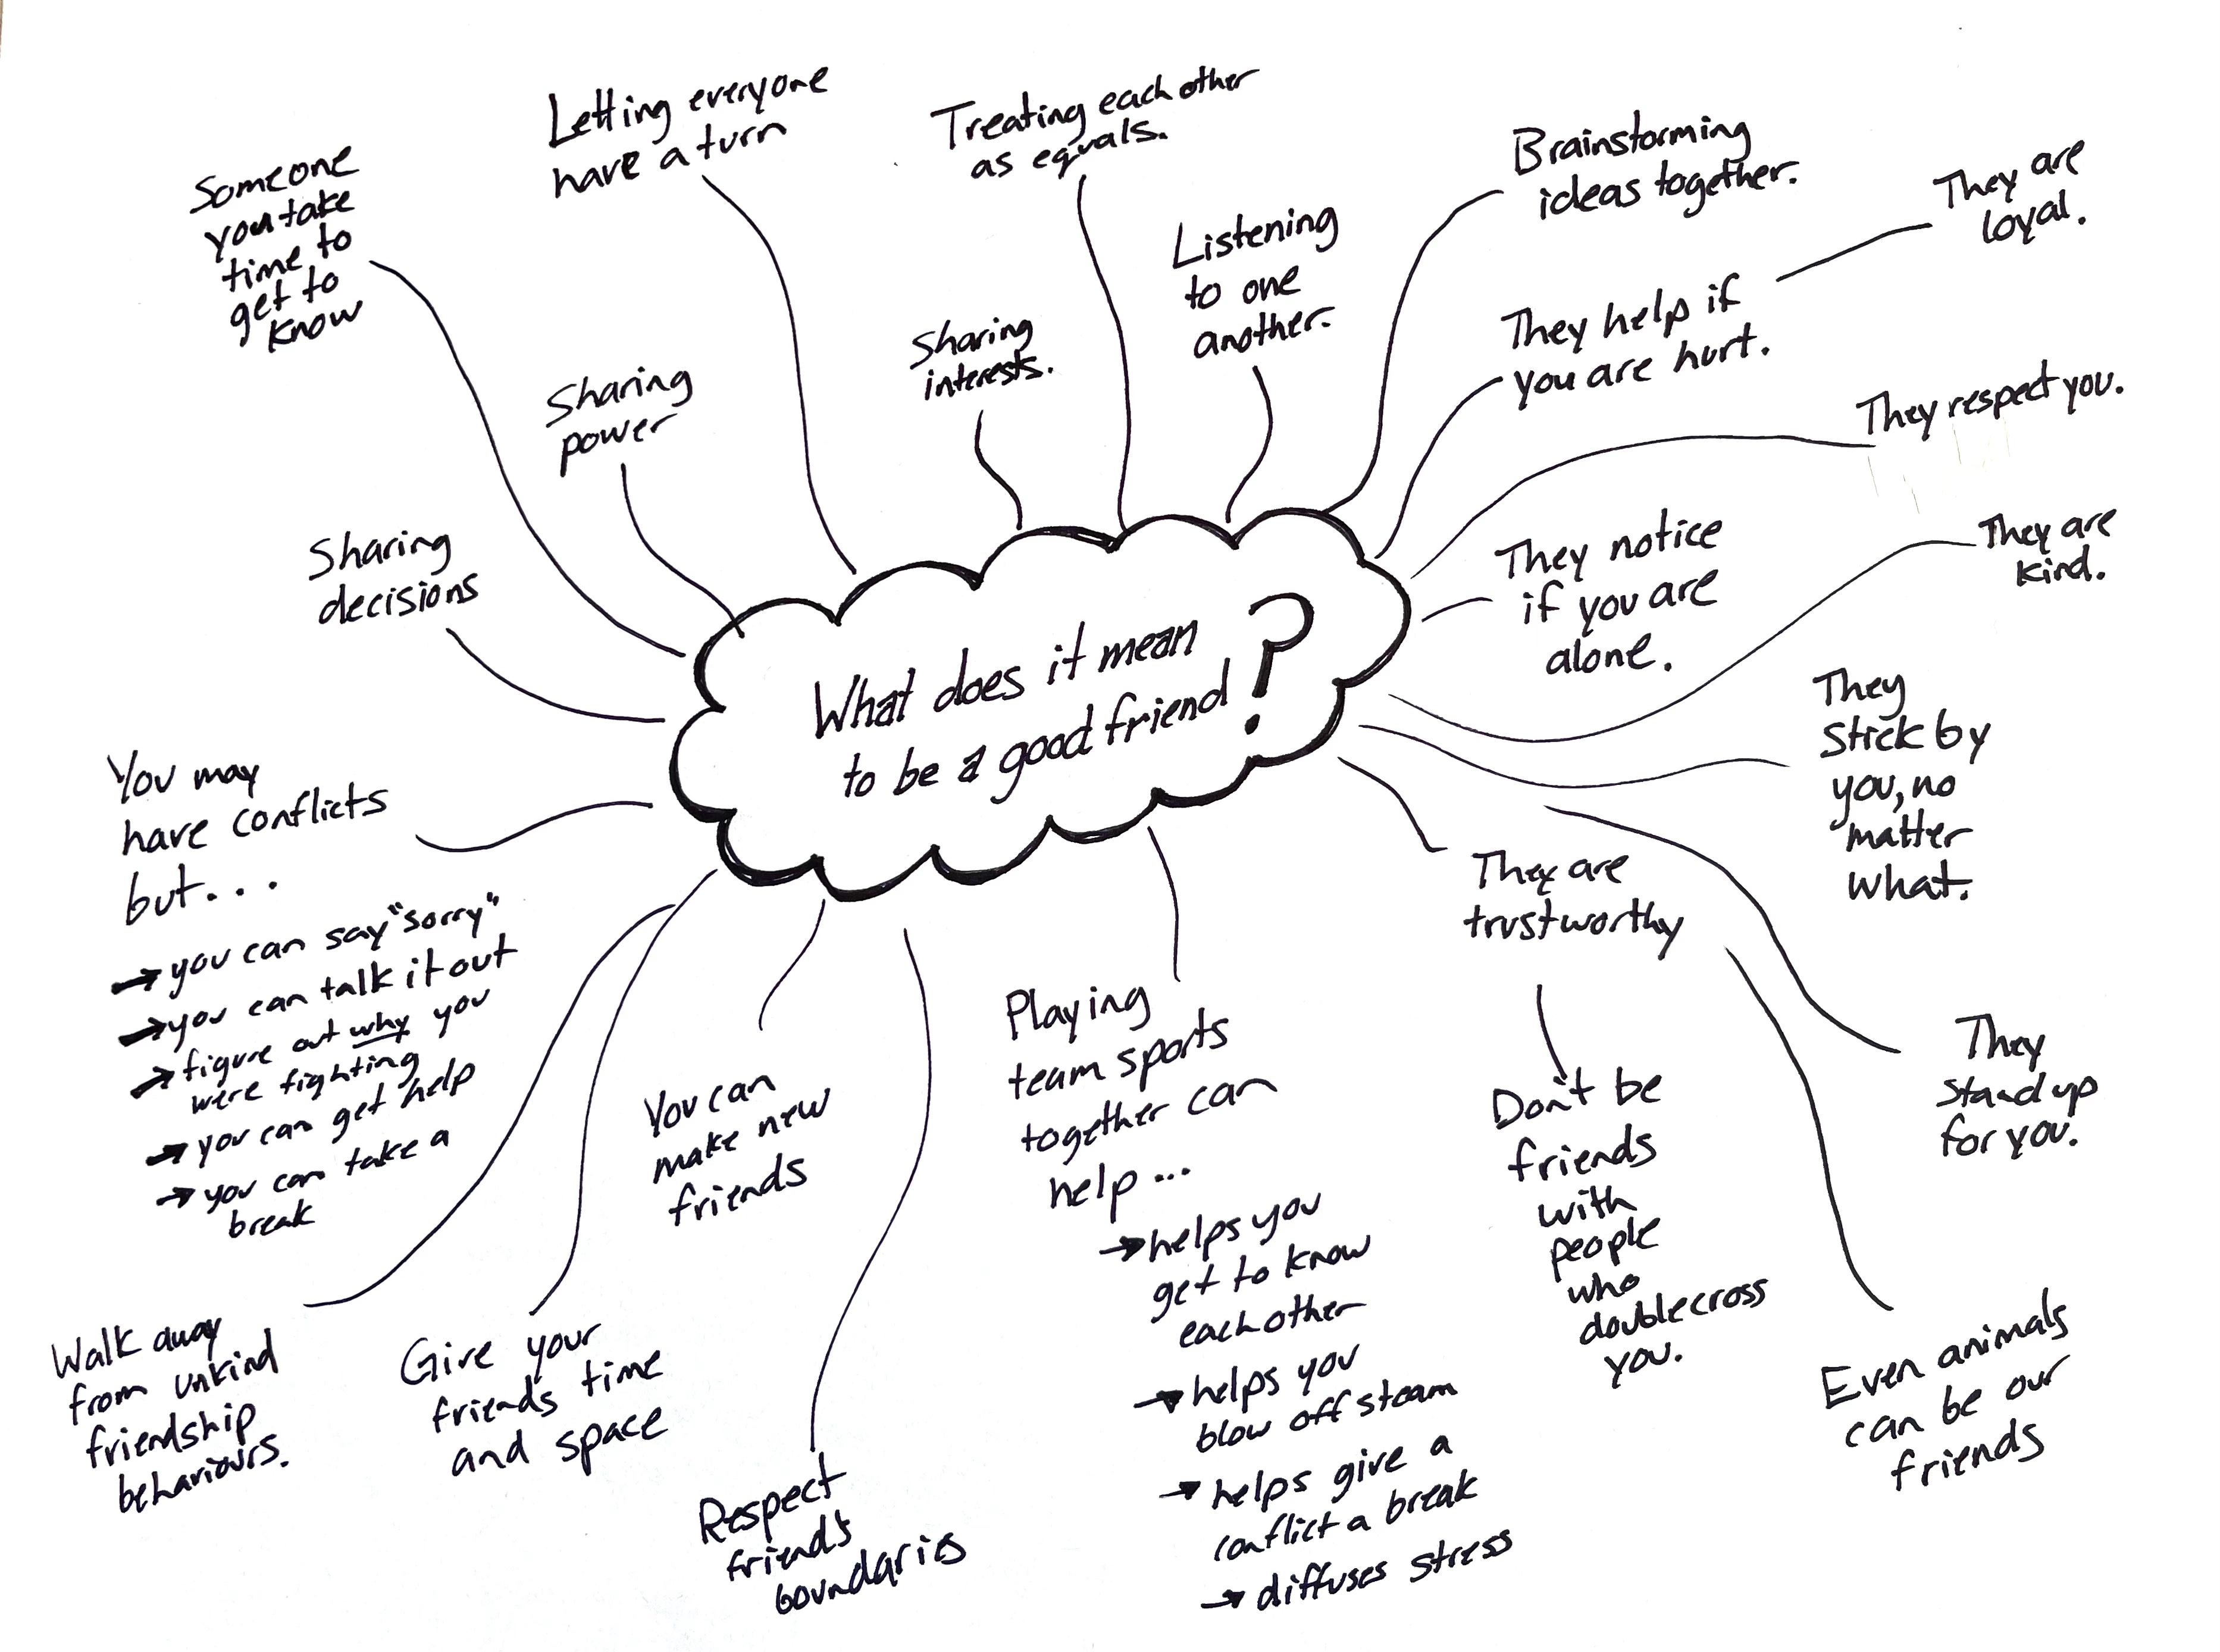 What does it mean
to be a good friend?
Someone
you take
time to
get to
know
Letting everyone
have a turn
Treating each other
as equals.
Brainstorming
ideas together.
They are
loyal.
Listening
to one
another.
Sharing
interests.
They help if
you are hurt.
Sharing
power
They respect you.
Sharing
decisions
They notice
if you are
alone.
They are
kind.
They
stick by
you, no
matter
what.
You may
have conflicts
but...
→ you can say "sorry"
→ you can talk it out
→ figure out why you
were fighting
→ you can get help
→ you can take a
break
They are
trustworthy
They
stand up
for you.
Don't be
friends
with
people
who
doublecross
you.
Playing
team sports
together can
help...
→ helps you
get to know
each other
→ helps you
blow off steam
→ helps give a
conflict a break
→ diffuses stress
You can
make new
friends
Even animals
can be our
friends
Walk away
from unkind
friendship
behaviours.
Give your
friends time
and space
Respect
friend's
boundaries